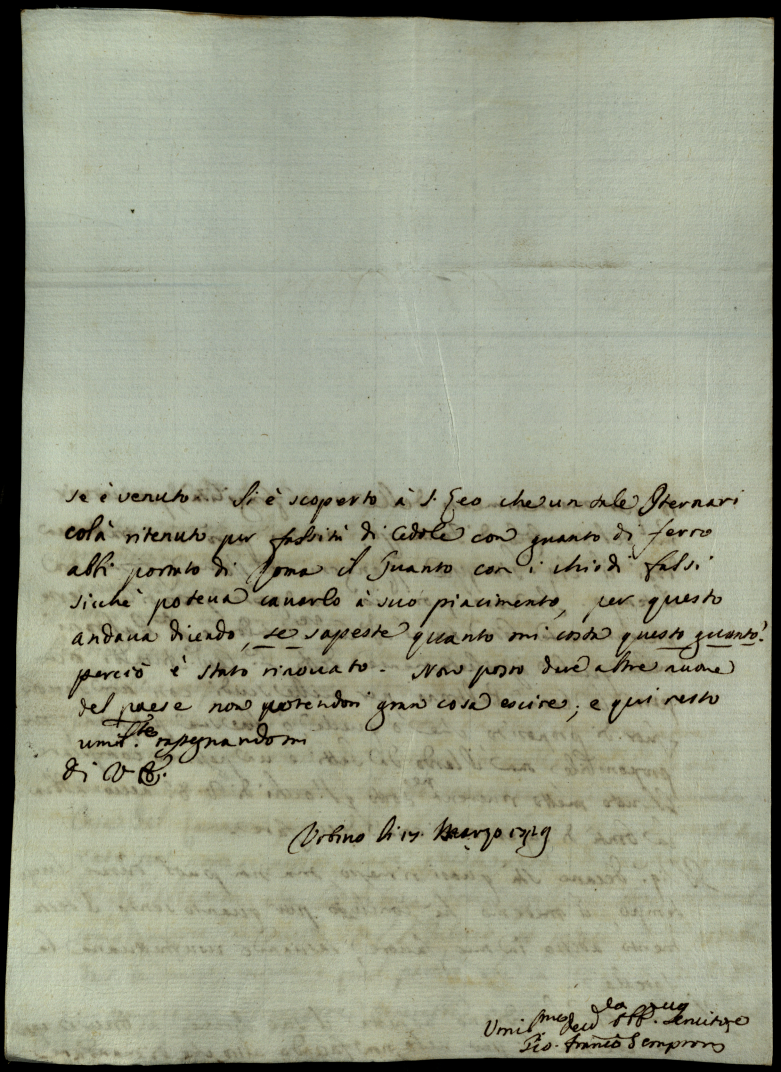 se è venuto. Si è scoperto à S. Leo che un tale Sternari
colà ritenuto per falsità di Cedole con guanto di ferro
abbi portato di Roma il Guanto con i chiodi falsi
sicchè poteva cavarlo à suo piacimento, per questo
andava dicendo, se sapeste quanto mi costa questo guanto!
perciò è stato rinovato. Non posso dire altre nuove
del paese non potendosi gran cosa escire; e qui resto
umil.te rassegnandomi
di V E.
Urbino li 17. Marzo
Umil.mo dev.
Gio. Franc.o Semproni